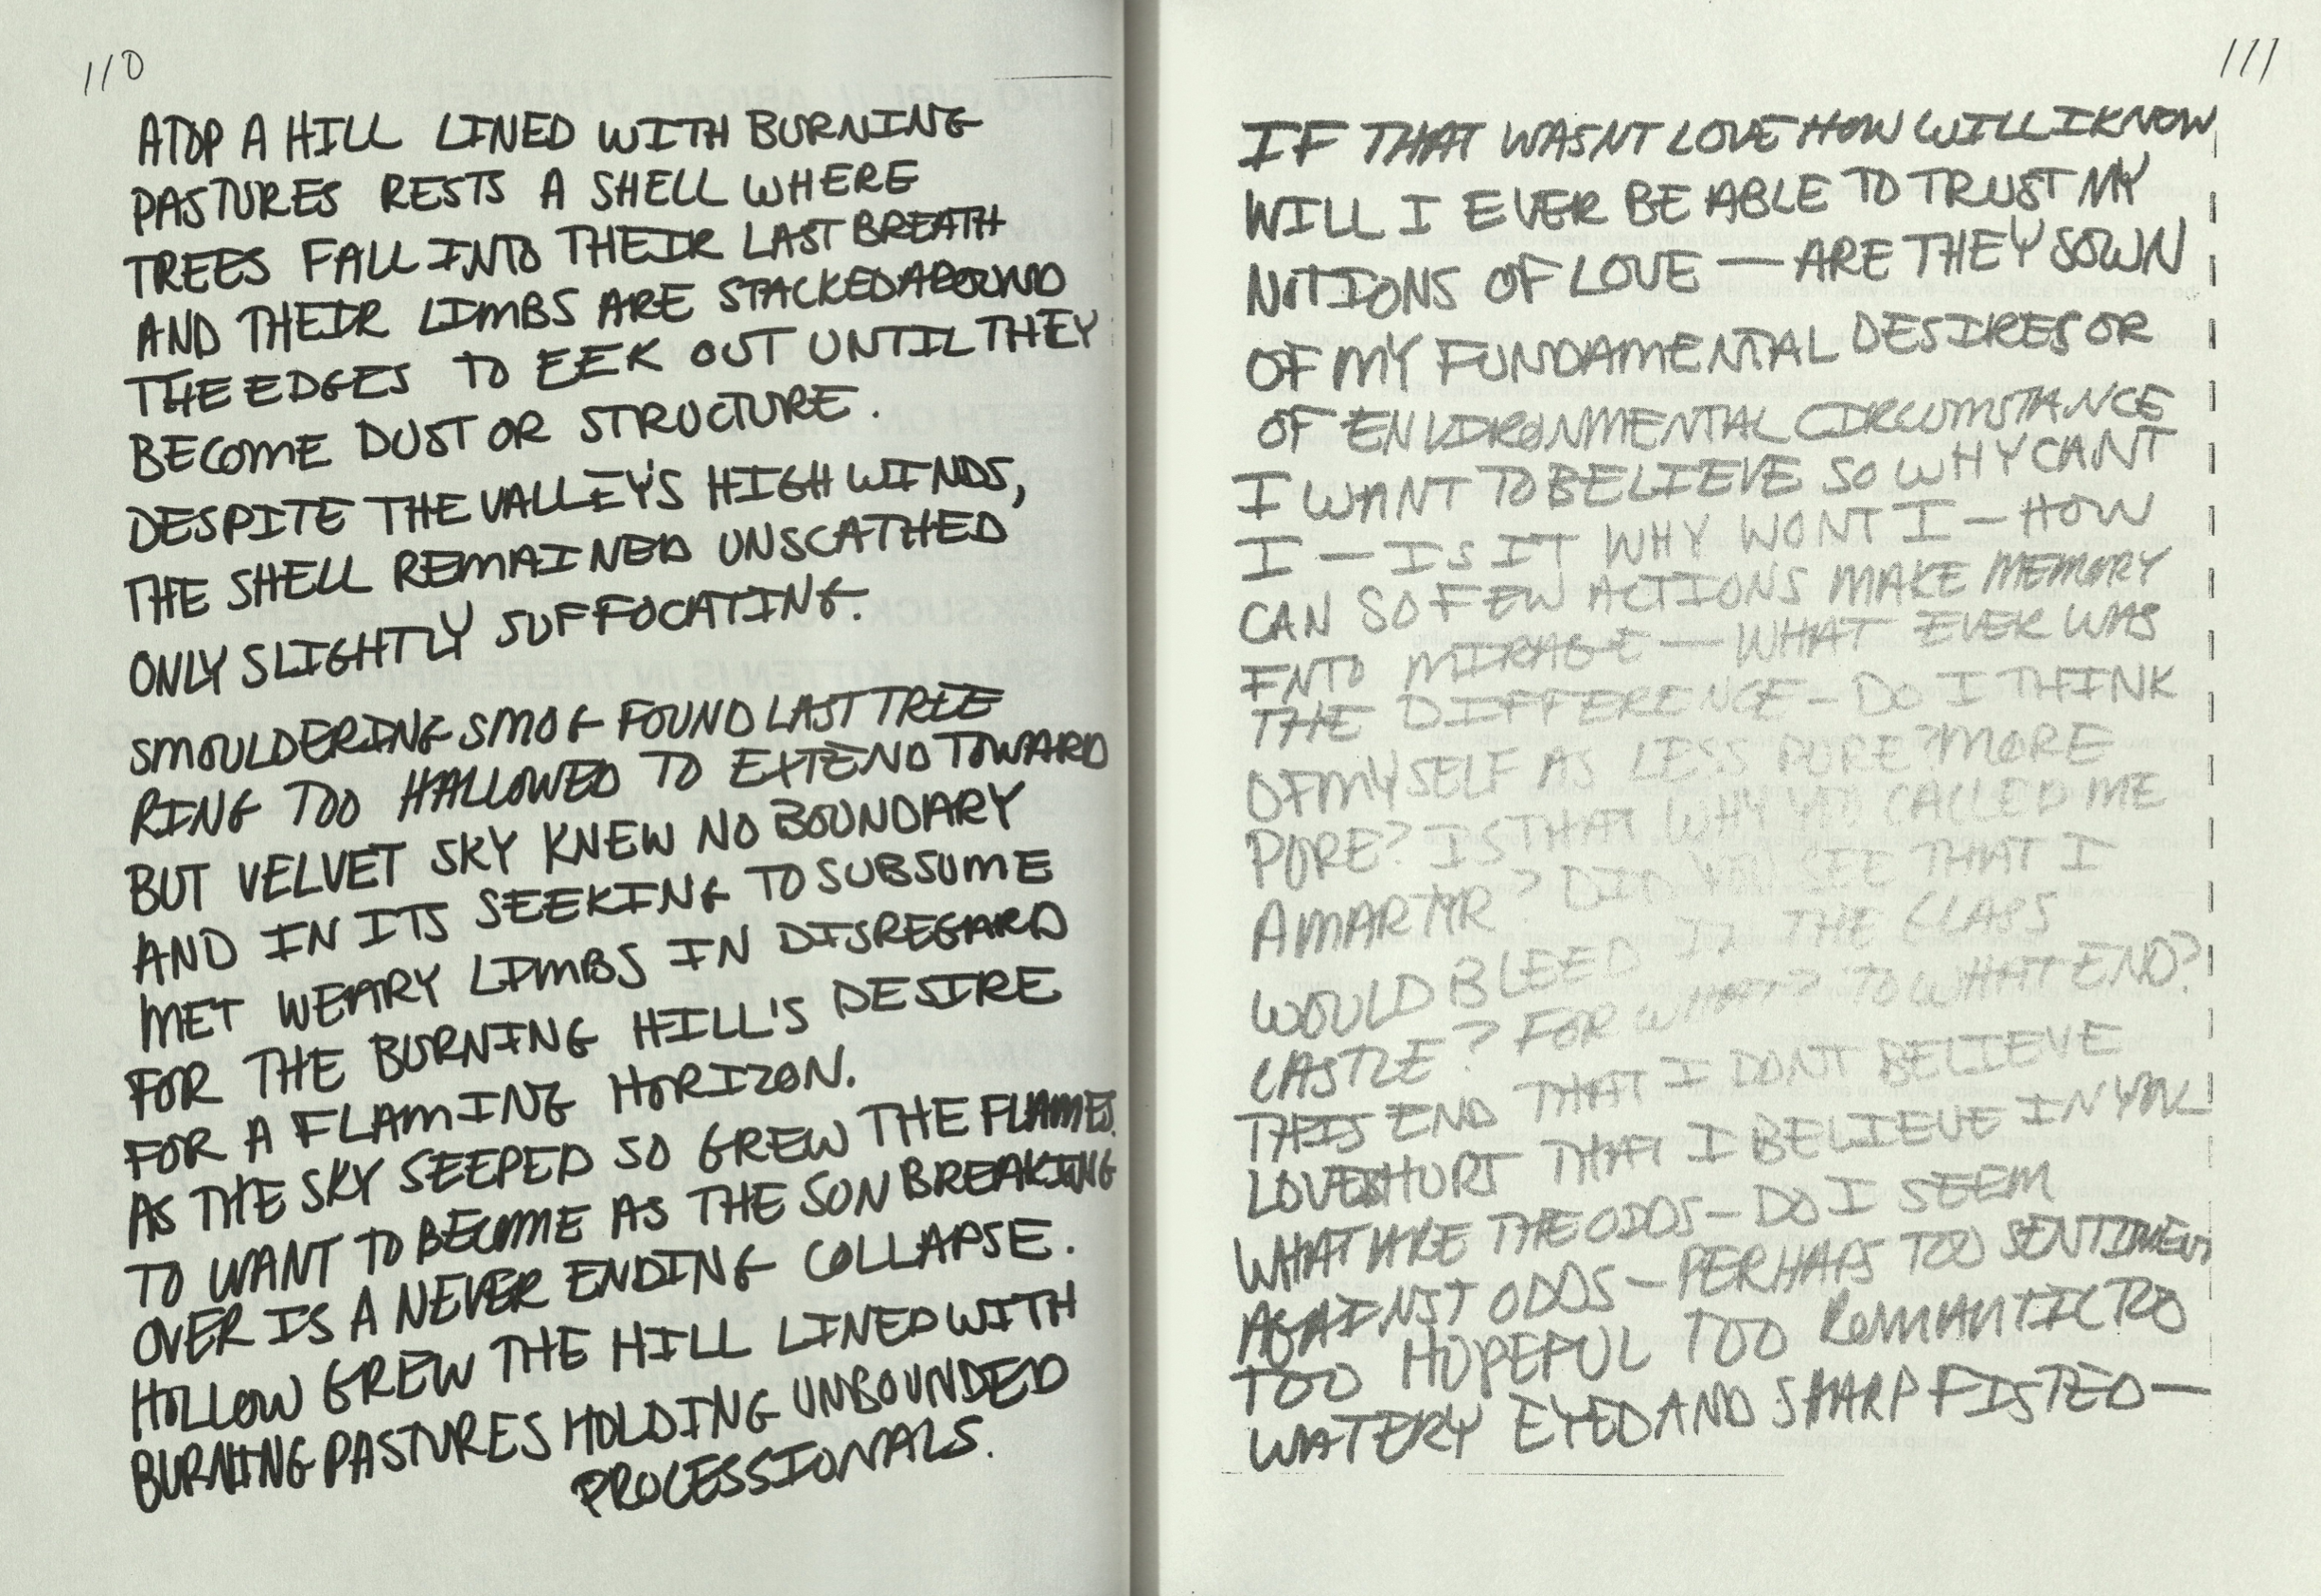 110
ATOP A HILL LINED WITH BURNING
PASTURES RESTS A SHELL WHERE
TREES FALL INTO THEIR LAST BREATH
AND THEIR LIMBS ARE STACKED AROUND
THE EDGES TO EEK OUT UNTIL THEY
BECOME DUST OR STRUCTURE.
DESPITE THE VALLEY'S HIGH WINDS,
THE SHELL REMAINED UNSCATHED
ONLY SLIGHTLY SUFFOCATING.
SMOULDERING SMOG FOUND LAST TREE
RING TOO HALLOWED TO EXTEND TOWARD
BUT VELVET SKY KNEW NO BOUNDARY
AND IN ITS SEEKING TO SUBSUME
MET WEARY LIMBS IN DISREGARD
FOR THE BURNING HILL'S DESIRE
FOR A FLAMING HORIZON.
AS THE SKY SEEPED SO GREW THE FLAMES.
TO WANT TO BECOME AS THE SON BREAKING
OVER IS A NEVER ENDING COLLAPSE.
HOLLOW GREW THE HILL LINED WITH
BURNING PASTURES HOLDING UNBOUNDED
PROCESSIONALS.
111
IF THAT WASNT LOVE HOW WILL I KNOW
WILL I EVER BE ABLE TO TRUST MY
NOTIONS OF LOVE — ARE THEY SOWN
OF MY FUNDAMENTAL DESIRES OR
OF ENVIRONMENTAL CIRCUMSTANCE
I WANT TO BELIEVE SO WHY CANT
I — IS IT WHY WONT I — HOW
CAN SO FEW ACTIONS MAKE MEMORY
INTO MIRAGE — WHAT EVER WAS
THE DIFFERENCE — DO I THINK
OF MYSELF AS LESS PURE? MORE
PURE? IS THAT WHY YOU CALLED ME
A MARTYR? DID YOU SEE THAT I
WOULD BLEED IN THE GLASS
CASTLE? FOR WHAT? TO WHAT END?
THIS END THAT I DONT BELIEVE
LOVE HURT THAT I BELIEVE IN YOU
WHAT ARE THE ODDS — DO I SEEM
AGAINST ODDS — PERHAPS TOO SENTIMENT
TOO HOPEFUL TOO ROMANTIC TOO
WATERY EYED AND SHARP FISTED —